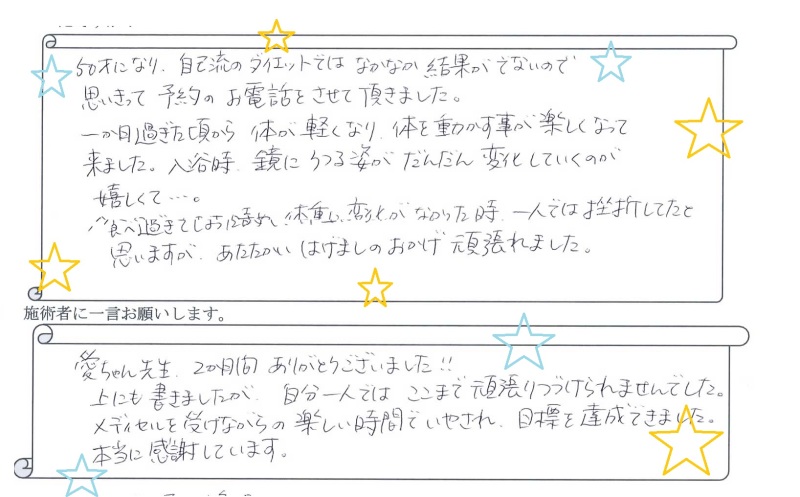 50才になり、自己流のダイエットではなかなか結果がでないので
思いきって予約のお電話をさせて頂きました。
一か月過ぎた頃から体が軽くなり、体を動かす事が楽しくなって
来ました。入浴時、鏡にうつる姿がだんだん変化していくのが
嬉しくて…。
食べ過ぎてしまった時や、体重の変化がなかった時、一人では挫折してたと
思いますが、あたたかいはげましのおかげ頑張れました。
施術者に一言お願いします。
愛ちゃん先生、2か月間ありがとうございました!!
上にも書きましたが、自分一人ではここまで頑張りつづけられませんでした。
メディセルを受けながらの楽しい時間でいやされ、目標を達成できました。
本当に感謝しています。